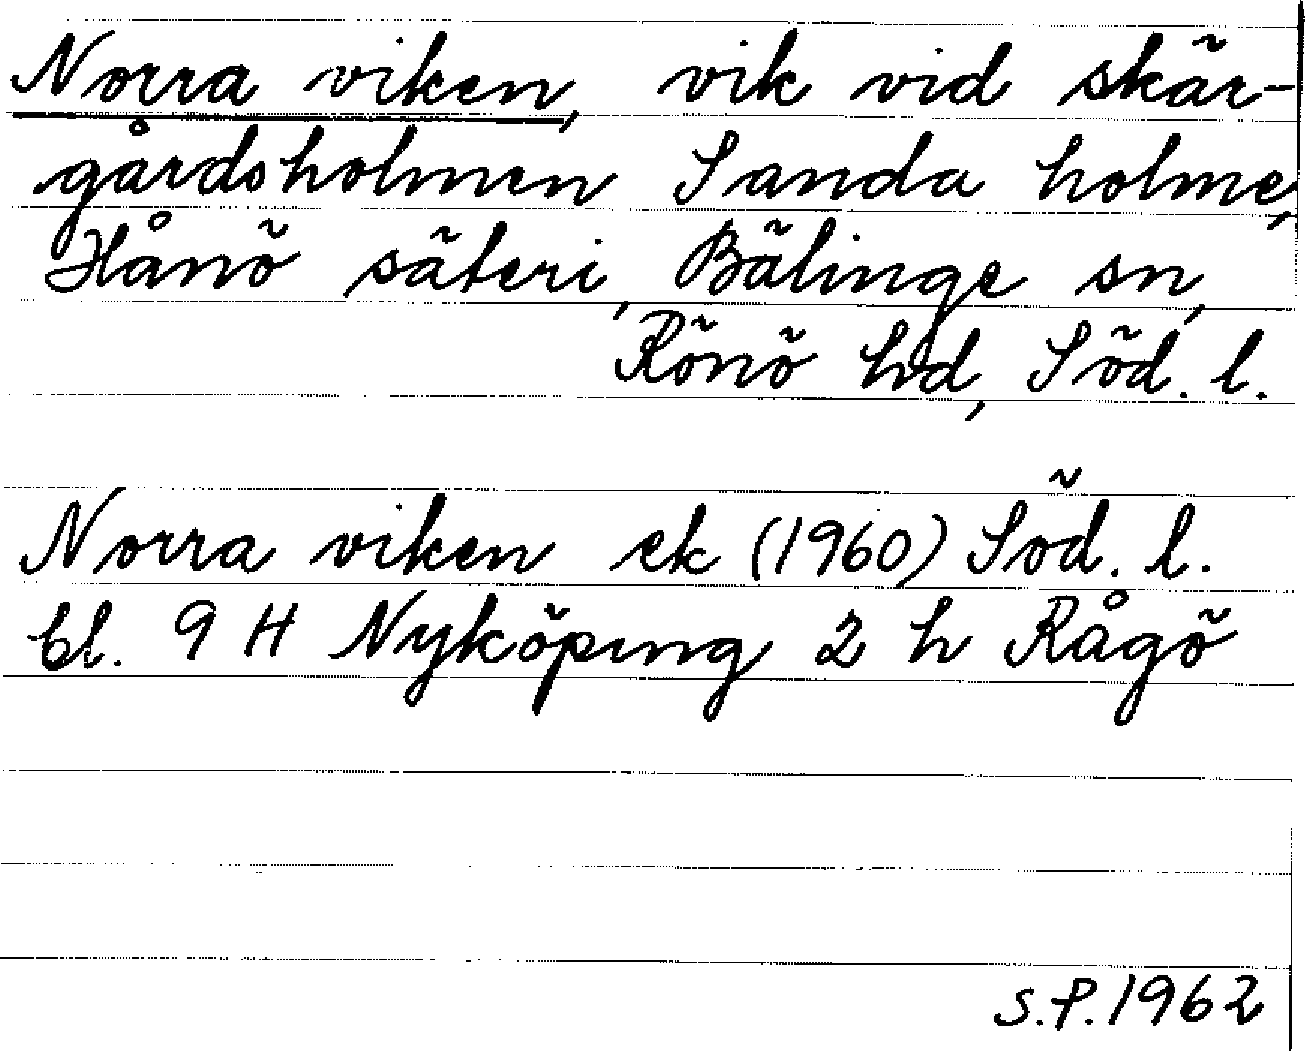 Norra viken, vik vid skär-
gårdsholmen Sanda holme,
Hånö säteri, Bälinge sn,
Rönö hd, Söd. l.
Norra viken ek (1960) Söd. l.
bl. 9 H Nyköping 2 h Rågö
S.P. 1962